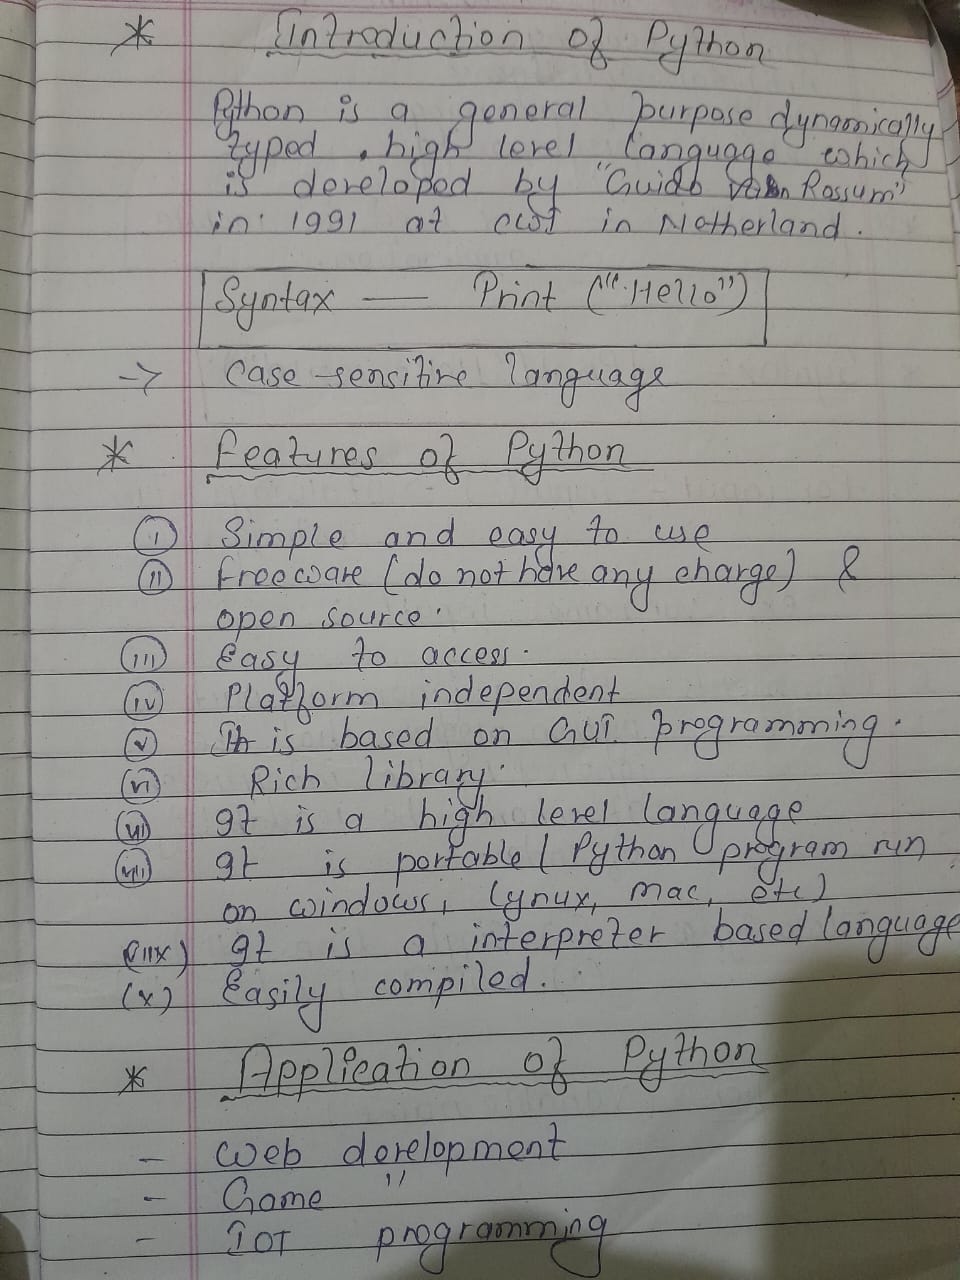 * Introduction of Python
Python is a general purpose dynamically
typed, high level language which
is developed by "Guido Van Rossum"
in 1991 at CWI in Netherland.
Syntax — Print ("Hello")
-> Case-sensitive language
* Features of Python
(i) Simple and easy to use
(ii) Freeware (do not have any charge) &
open source.
(iii) Easy to access.
(iv) Platform independent
(v) It is based on GUI programming.
(vi) Rich library.
(vii) It is a high level language
(viii) It is portable (Python program run
on windows, Lynux, mac, etc)
(iix) It is a interpreter based language
(x) Easily compiled.
* Application of Python
- Web development
- Game "
- IOT programming